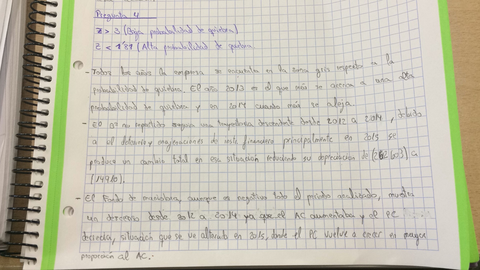 Pregunta 4
Z > 3 (Baja probabilidad de quiebra)
Z < 1'81 (Alta probabilidad de quiebra
- Todos los años la empresa se encuentra en la zona gris respecto a la
probabilidad de quiebra. El año 2013 es el que más se acerca a una alta
probabilidad de quiebra y en 2014 cuando más se aleja.
- El no repartido una tendencia descendente desde 2012 a 2014, debido
a un deterioro y de activo financiero principalmente en 2015 se
produce un cambio total en esa situación reduciendo su depreciación de a
- El Fondo de maniobra, aunque es negativo todo el periodo analizado, muestra
una desde 2012 a 2014 ya que el AC aumentaba y el PC
situación que se ve alterada en 2015, donde el PC vuelve a crecer en mayor
proporción al AC.